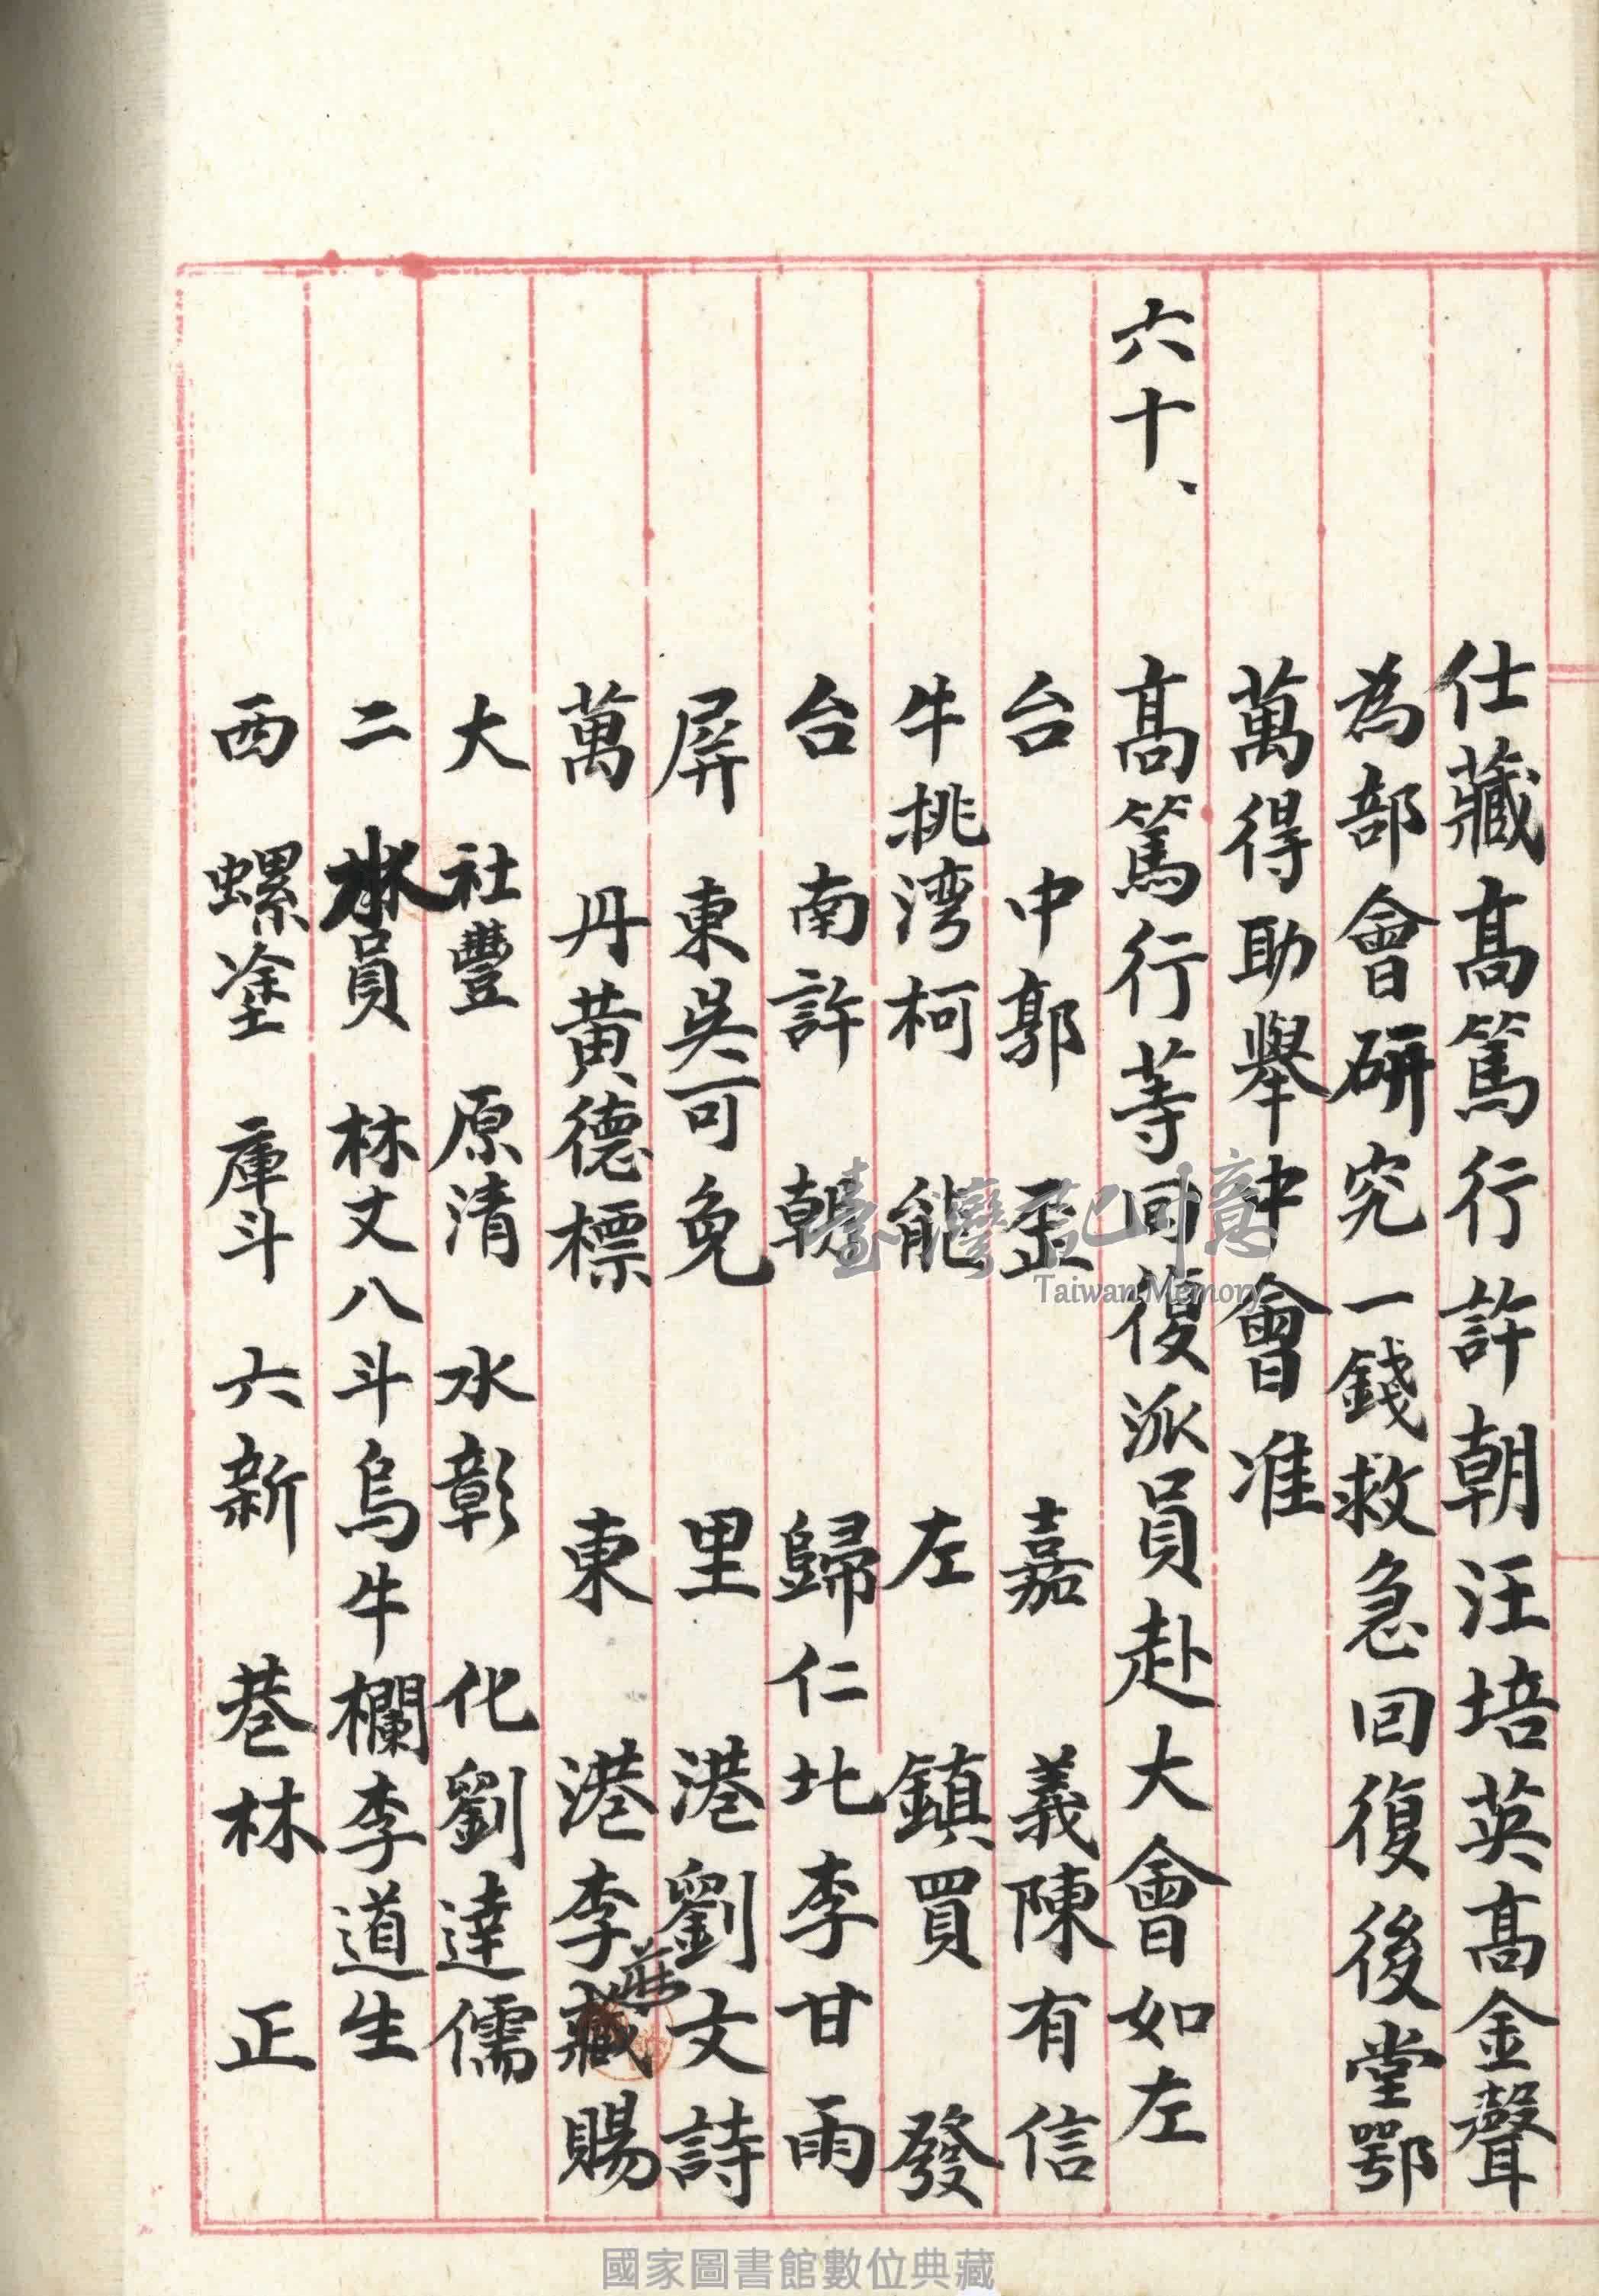 仕藏高篤行許朝汪培英高金聲
為部會研究一錢救急回復後堂鄂
萬得助舉中會准
六十、高篤行等同復派員赴大會如左
台中郭歪 嘉義陳有信
牛挑湾柯能 左鎮買發
台南許朝 歸仁北李甘雨
屏東吳可免 里港劉文詩
萬丹黃德標 東港李莊賜
大社豐原清水彰化劉達儒
二林員林丈八斗烏牛欄李道生
西螺塗庫斗六新巷林正
臺灣記憶
Taiwan Memory
國家圖書館數位典藏